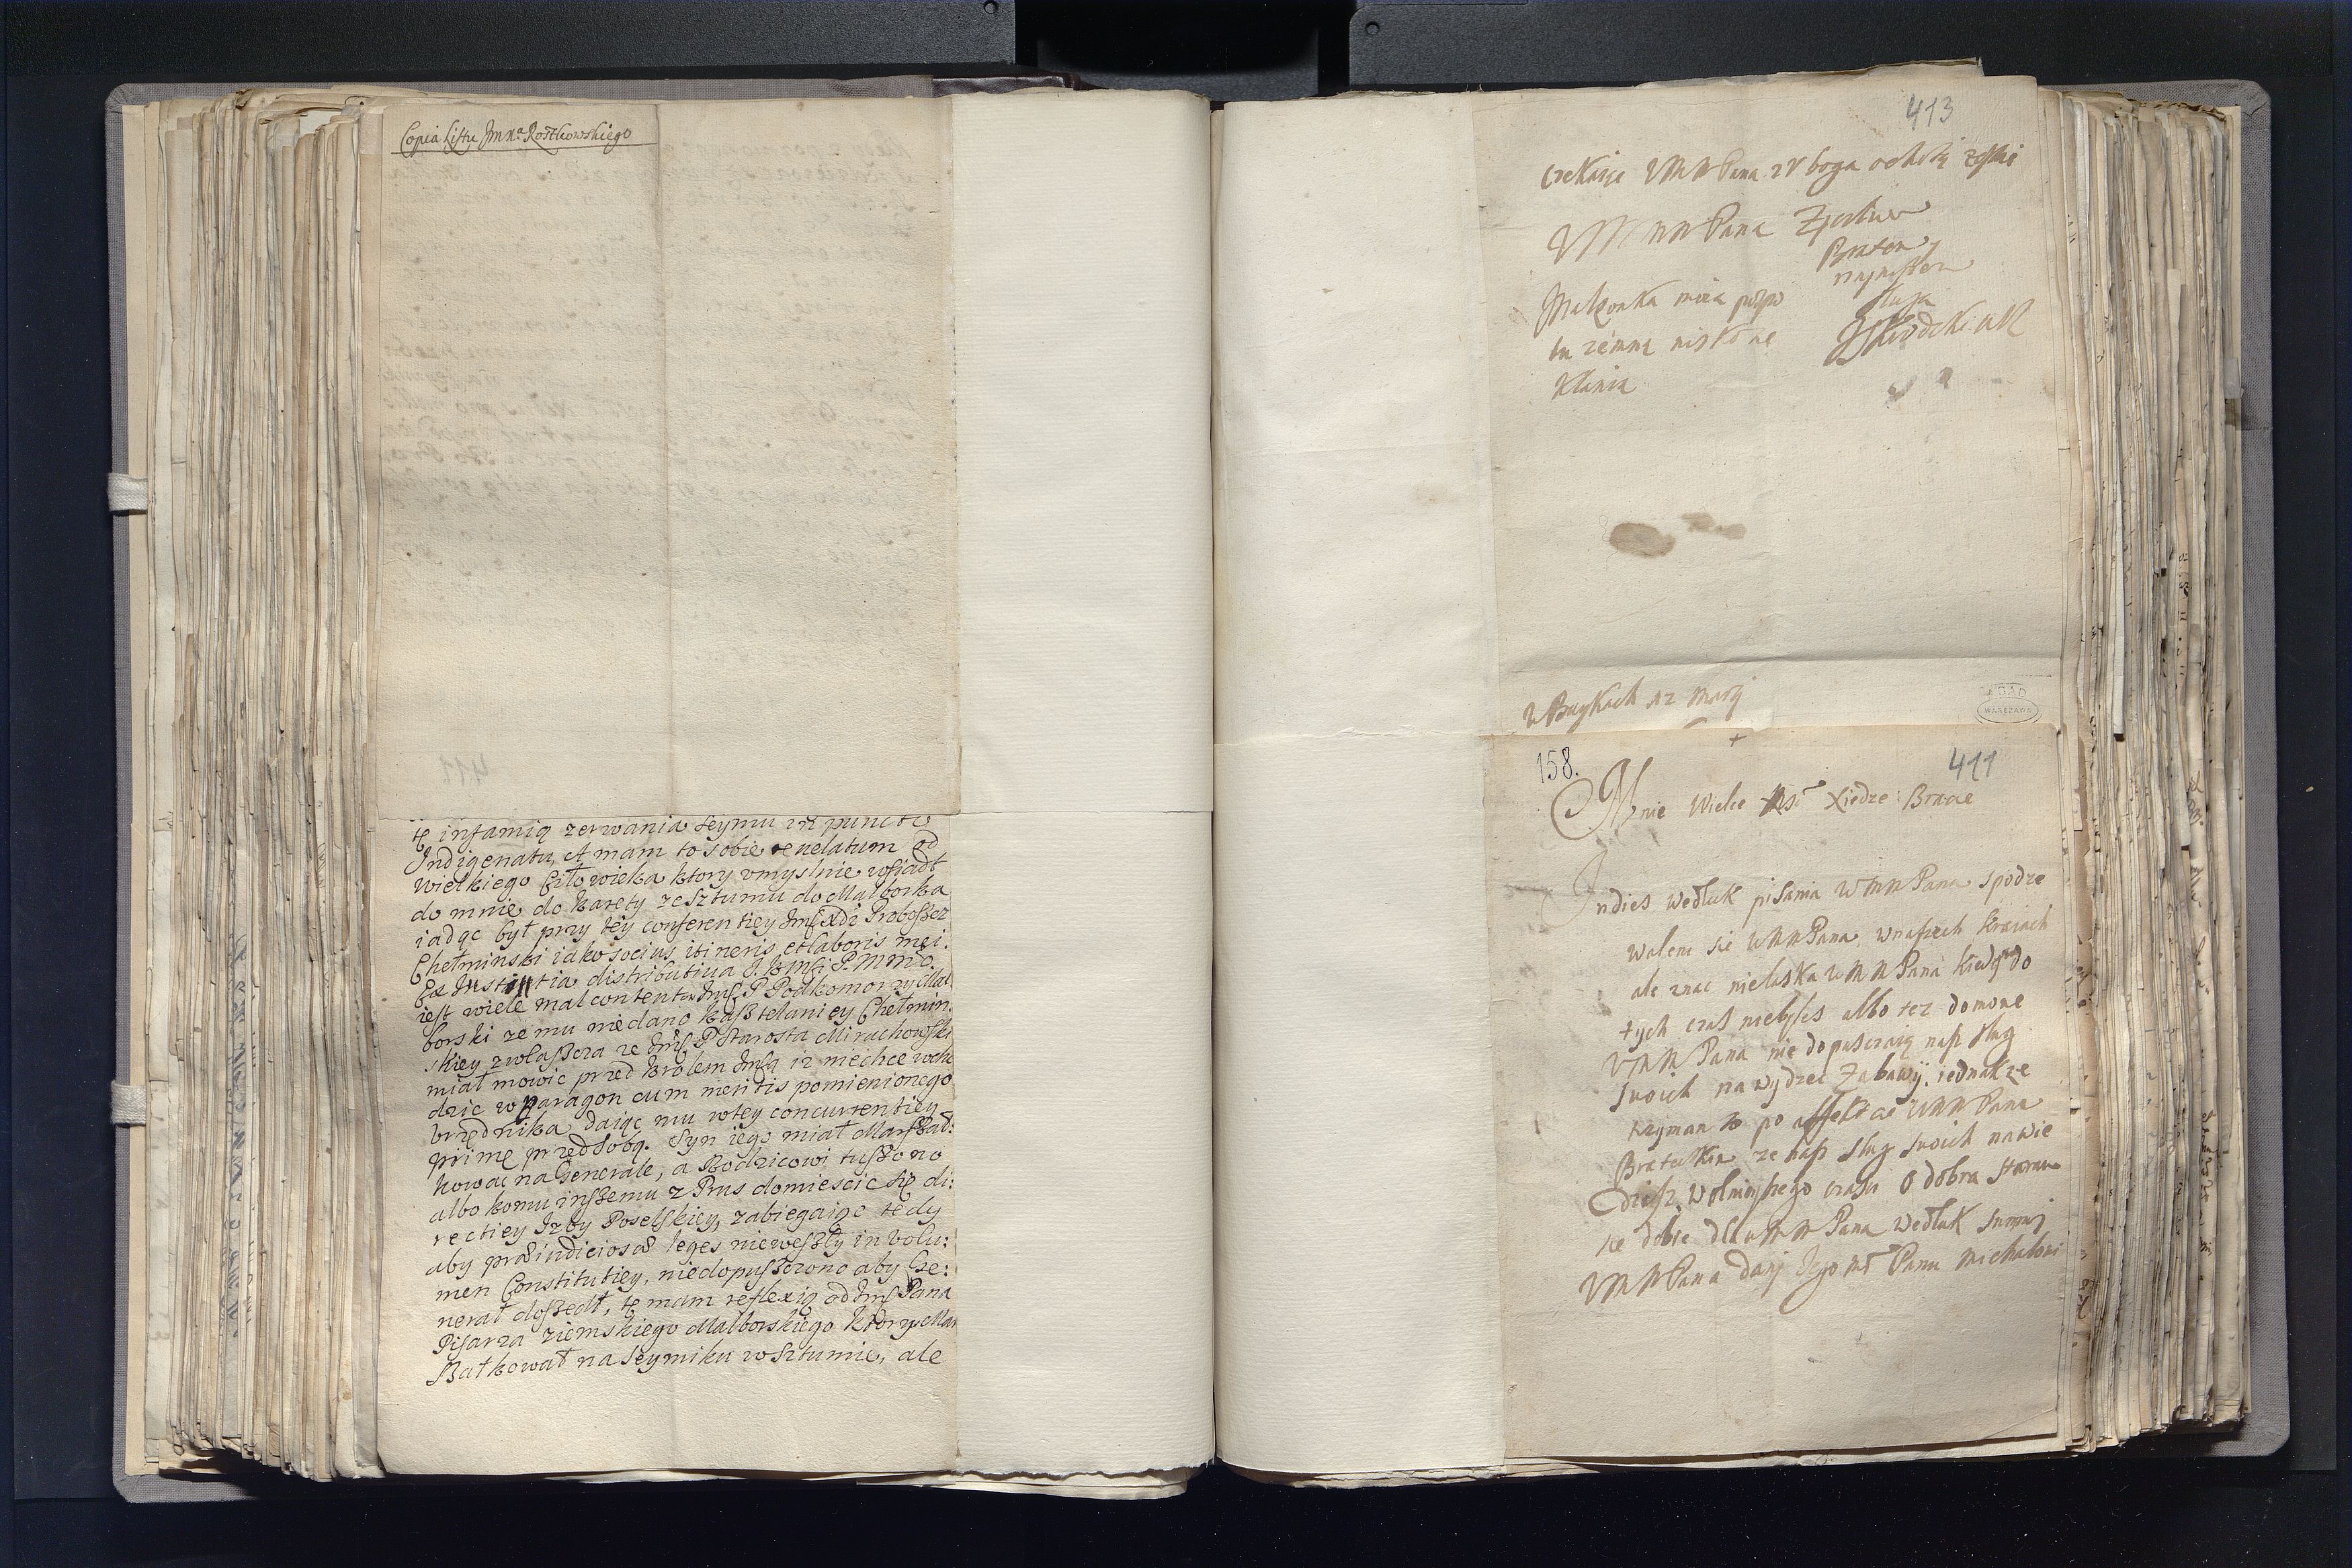 Copia Listu Jmxa Rostkowskiego
tę infamią zerwania Seymu in puncto
Indigenatu, et mam to sobie revelatum od
wielkiego Człowieka ktory vmyslnie wsiadł
do mnie do Karety ze Sztumu do Malborka
iadąc był przy tey conferentiey Jmſ Xdz Proboſzcz
Chełminski iako socius itineris et laboris mei.
Ex Justitia distributiua J. K Mſci P. M M
iest wiele malcontentow Jmſ P Podkomorzy Mal
borski ze mu nie dano Kaſztelaniey Chełmin:
skiey zwłaſzcza ze Jmſ P Starosta Mirachowski
miał mowic przed Krolem Jmſcią iz niechce wcho
dzic w paragon cum meritis pomienionego
Vrzędnika daiąc mu w tey concurrentiey
prime przed sobą. Syn iego miał Marſzał:
kowac na Generale, a Rodzicowi tuſzono
albo komu inſzemu z Prus domiescic się di:
rectiey Izby Poselſkiey, zabiegaiąc tedy
aby præiudiciosæ leges nieweſzły in Volu:
men Constitutiey, niedopuſzczono aby Ge:
nerał doſzedł, tę mam reflexią od Jmſ Pana
Piſarza Ziemskiego Malborskiego ktory Mar
ſzałkował na Seymiku w Sztumie, ale
413
czekaiąc VMMPana
VMMM Pana
Bratem y
sługą
Małzonka moia
tu zemną nisko się
Kłania
w Baykach 12 Marij
AGAD
WARSZAWA
158.
411
Mnie Wielce Mſci Xiedze Bracie
Indies wedłuk pisania WMMPana spodze
walem sie WMMPana, wnaszech Kraiach
ale znac nielaska WMMPana kiedy do
tych czas niebyles albo tez domowe
VMMPana nie dopusczaią nasz sług
swoich nawydzec Zabawÿ, iednakze
trzymam to po affektas WMMPana
Braterskim ze nasz sług swoich nawie
dzisz, wolnieyszego czasu O dobra staram
sie dobre dla VMMPana wedłuk
VMMPana danÿ Jego Mſ Panu Michałowi